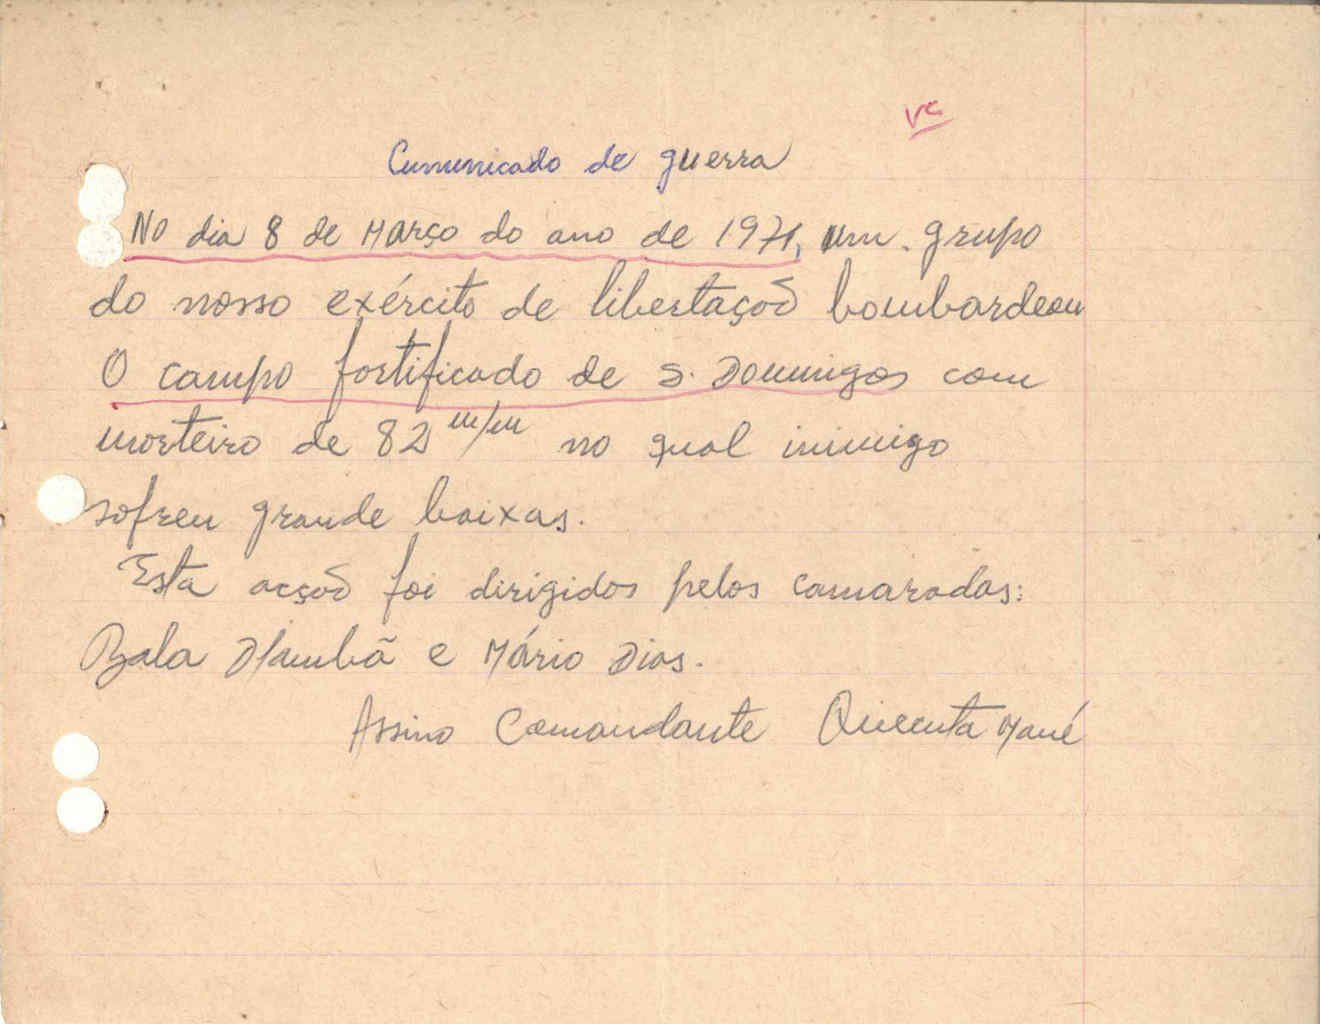 Cumunicado de guerra
No dia 8 de Março do ano de 1971, um grupo
do nosso exército de libertaçoõ bombardeou
O campo fortificado de S. Domingos com
morteiro de 82 m/m no qual inimigo
sofreu grande baixas.
Esta acçoõ foi dirigidos pelos camaradas:
Bala Djambã e Mário Dias.
Assino Comandante Quecuta Mané